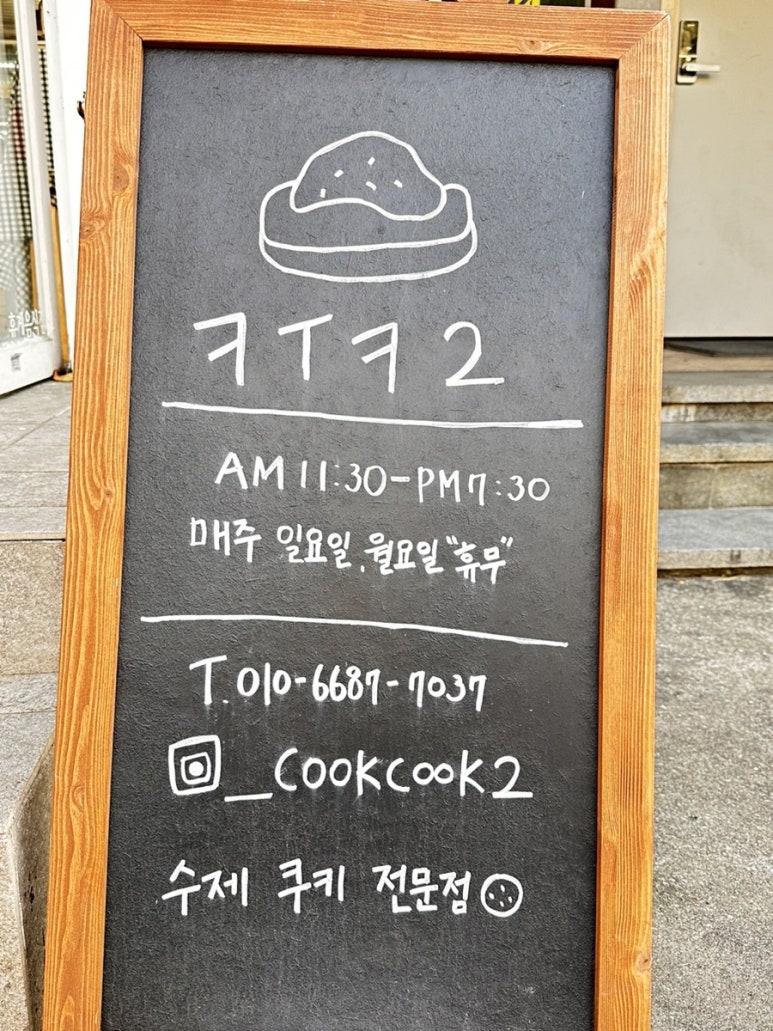 ㅋㅜㅋ2
AM 11:30-PM 7:30
매주 일요일, 월요일 "휴무"
T. 010-6687-7037
_COOKCOOK2
수제 쿠키 전문점